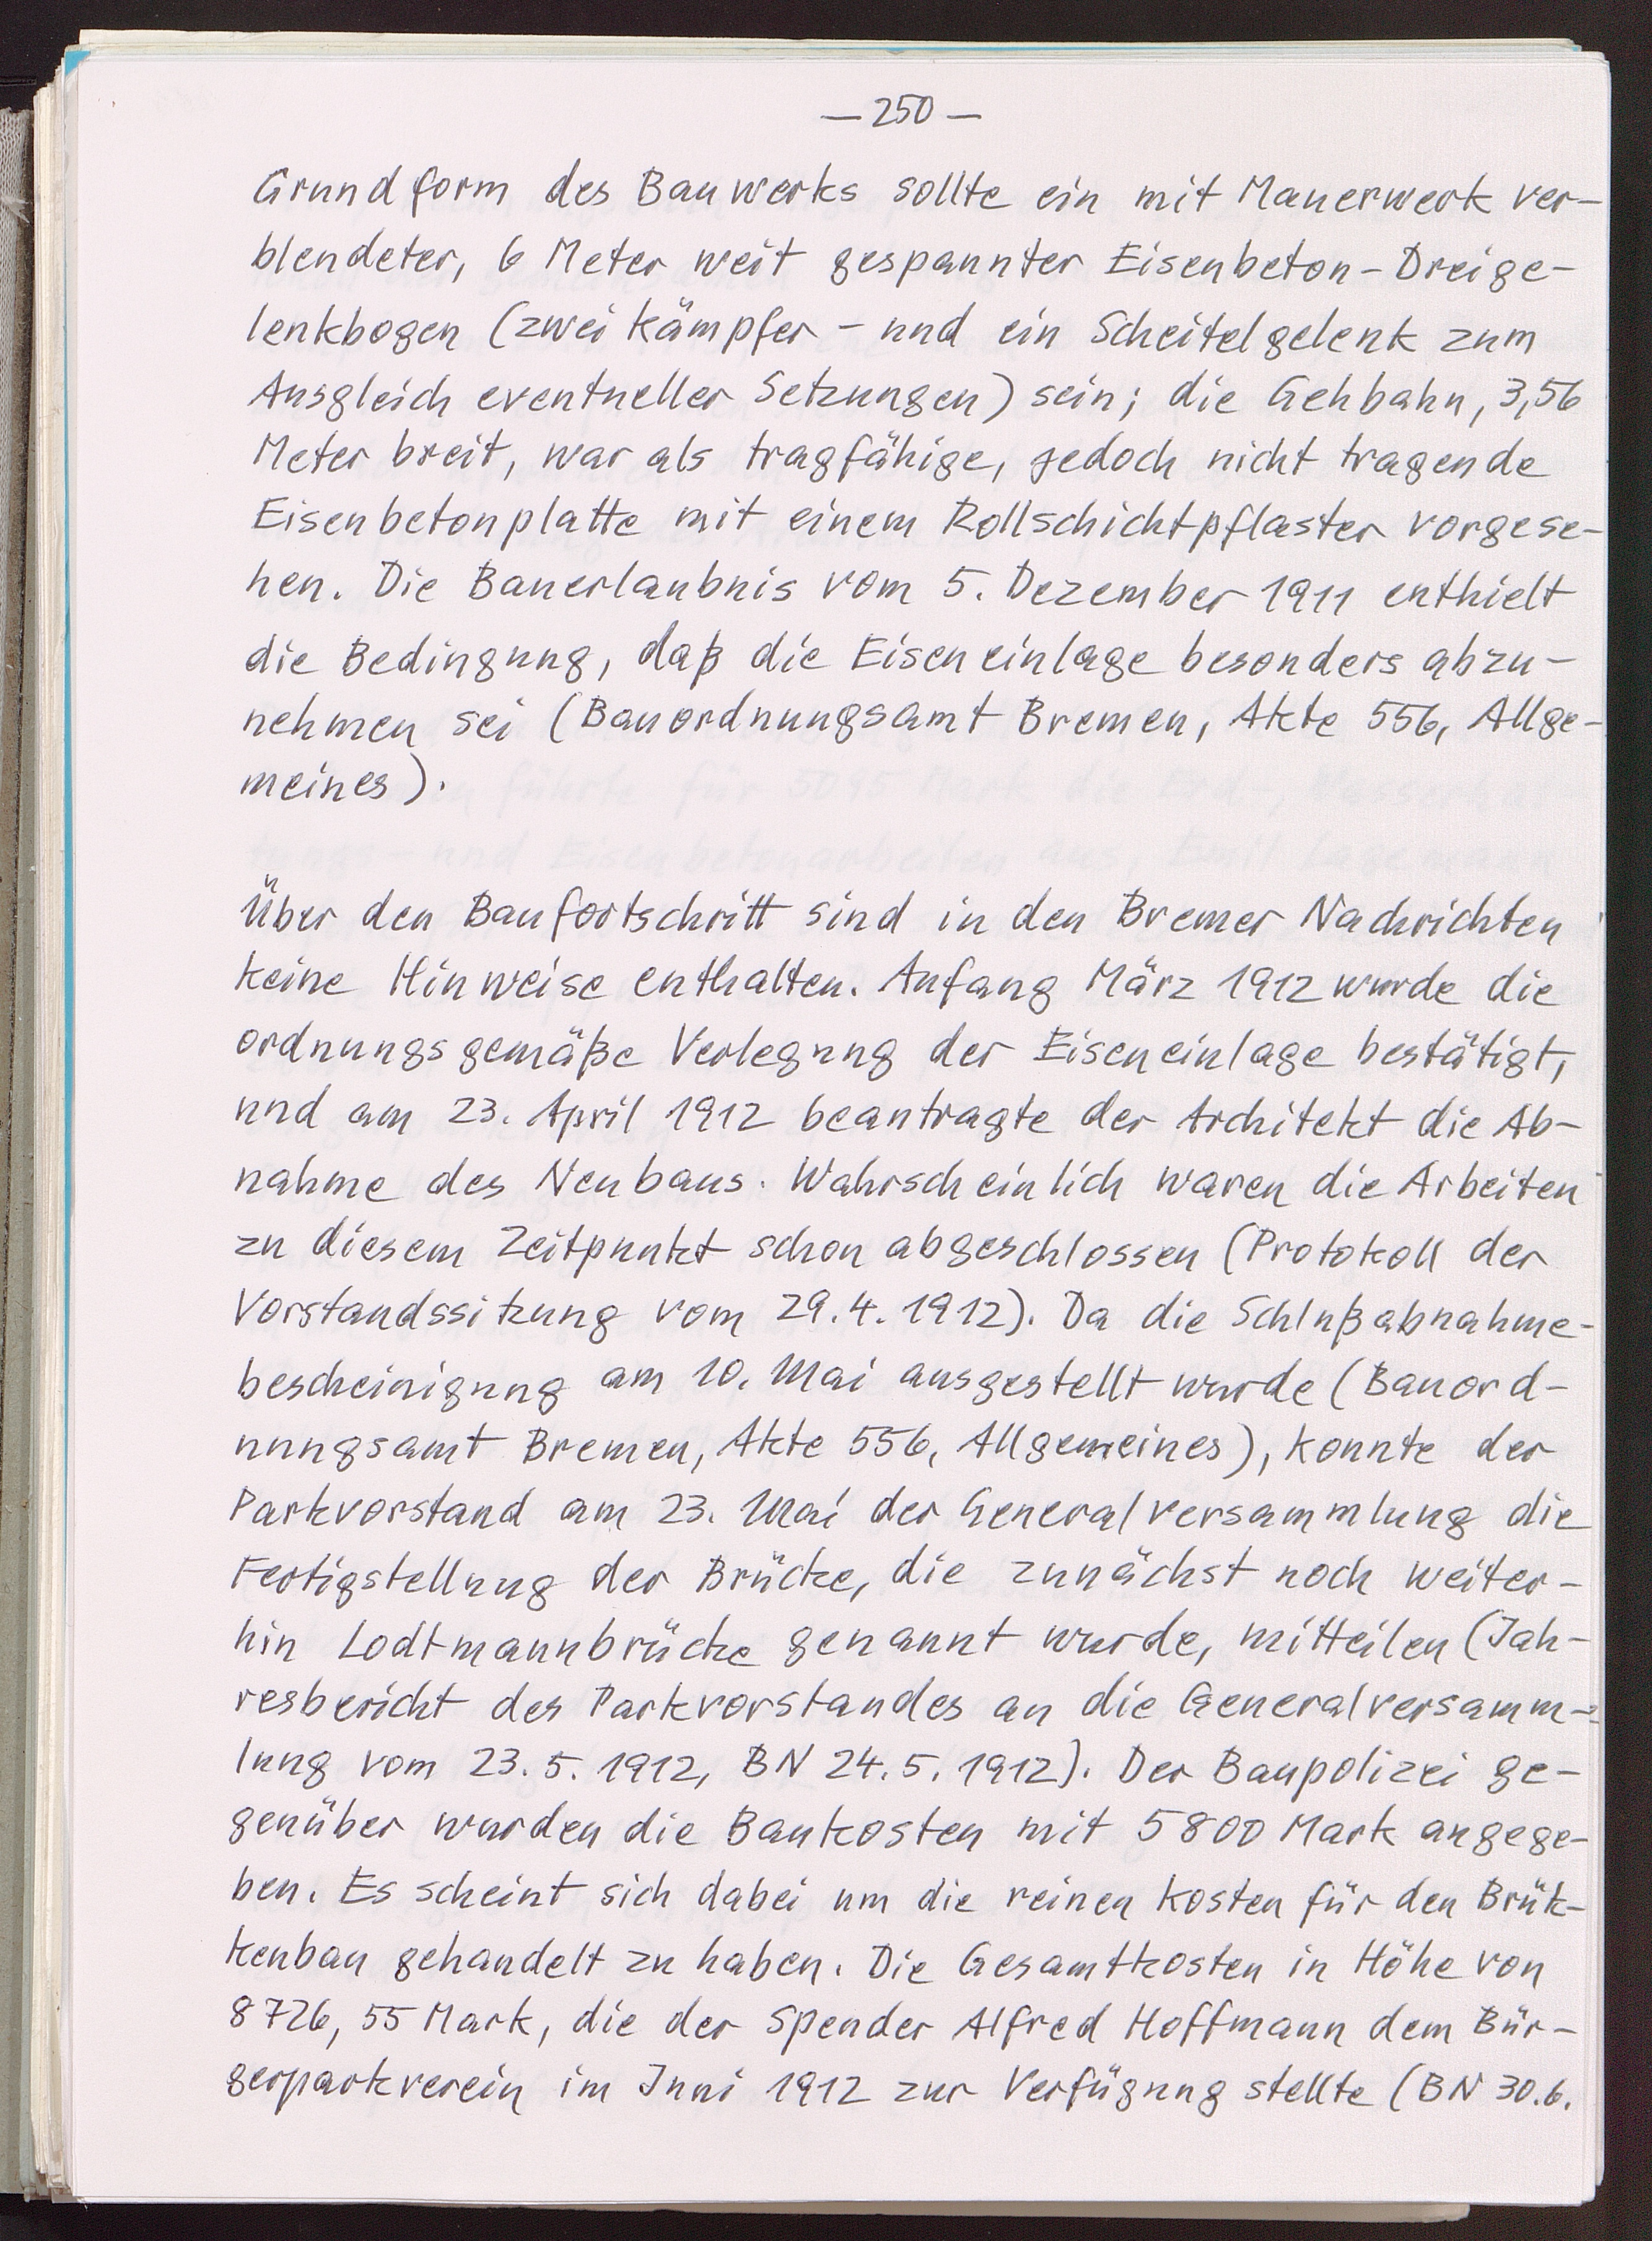 — 250 —
Grundform des Bauwerks sollte ein mit Mauerwerk ver-
blendeter, 6 Meter weit gespannter Eisenbeton-Dreige-
lenkbogen (zwei Kämpfer- und ein Scheitelgelenk zum
Ausgleich eventueller Setzungen) sein; die Gehbahn, 3,56
Meter breit, war als tragfähige, jedoch nicht tragende
Eisenbetonplatte mit einem Rollschichtpflaster vorgese-
hen. Die Bauerlaubnis vom 5. Dezember 1911 enthielt
die Bedingung, daß die Eiseneinlage besonders abzu-
nehmen sei (Bauordnungsamt Bremen, Akte 556, Allge-
meines).
Über den Baufortschritt sind in den Bremer Nachrichten
keine Hinweise enthalten. Anfang März 1912 wurde die
ordnungsgemäße Verlegung der Eiseneinlage bestätigt,
und am 23. April 1912 beantragte der Architekt die Ab-
nahme des Neubaus. Wahrscheinlich waren die Arbeiten
zu diesem Zeitpunkt schon abgeschlossen (Protokoll der
Vorstandssitzung vom 29.4.1912). Da die Schlußabnahme-
bescheinigung am 10. Mai ausgestellt wurde (Bauord-
nungsamt Bremen, Akte 556, Allgemeines), konnte der
Parkvorstand am 23. Mai der Generalversammlung die
Fertigstellung der Brücke, die zunächst noch weiter-
hin Lodtmannbrücke genannt wurde, mitteilen (Jah-
resbericht des Parkvorstandes an die Generalversamm-
lung vom 23.5.1912, BN 24.5.1912). Der Baupolizei ge-
genüber wurden die Baukosten mit 5800 Mark angege-
ben. Es scheint sich dabei um die reinen Kosten für den Brük-
kenbau gehandelt zu haben. Die Gesamtkosten in Höhe von
8726,55 Mark, die der Spender Alfred Hoffmann dem Bür-
gerparkverein im Juni 1912 zur Verfügung stellte (BN 30.6.